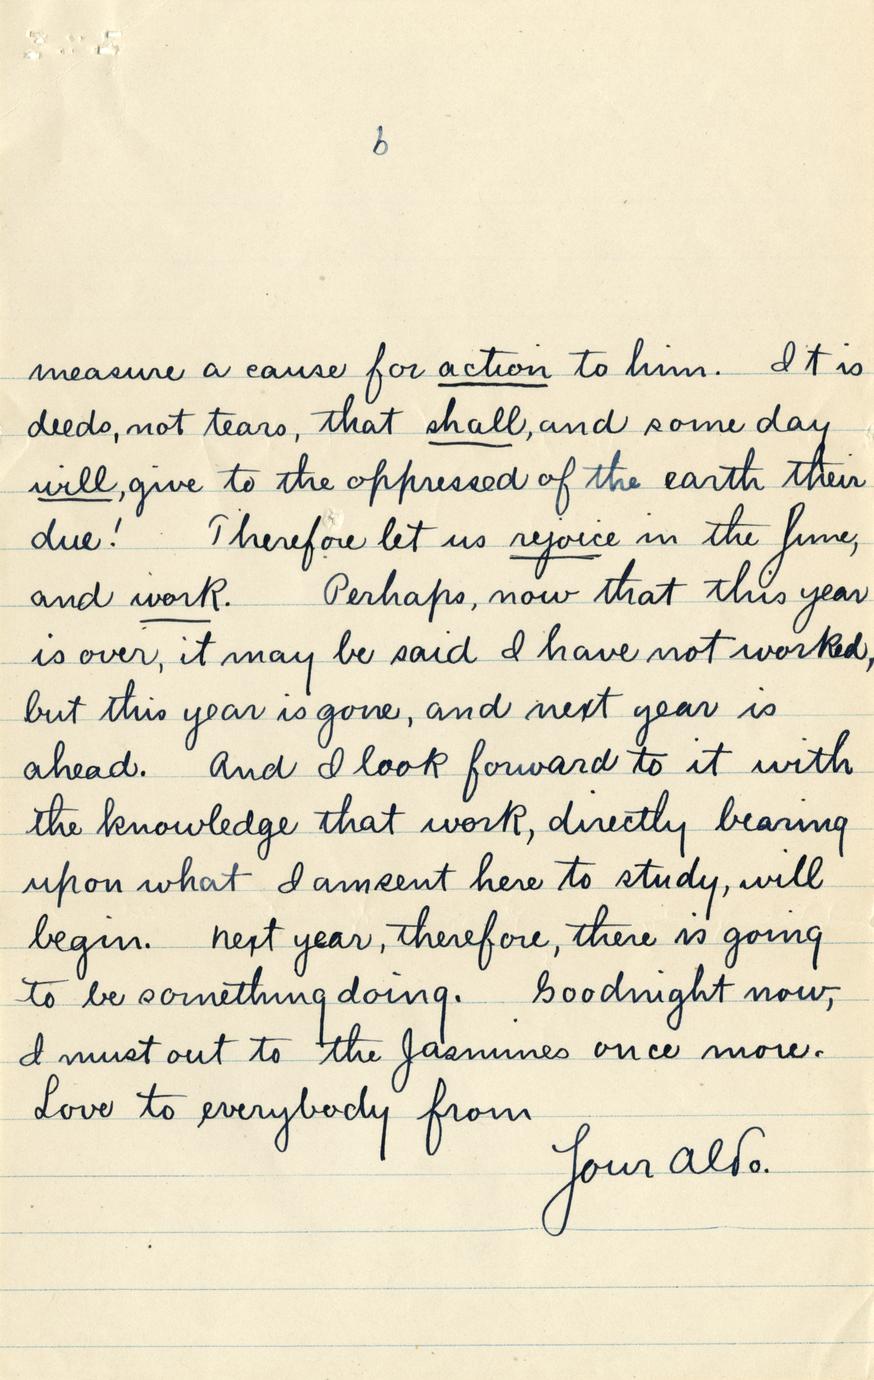 6
measure a cause for action to him. It is
deeds, not tears, that shall, and some day
will, give to the oppressed of the earth their
due! Therefore let us rejoice in the June,
and work. Perhaps, now that this year
is over, it may be said I have not worked,
but this year is gone, and next year is
ahead. And I look forward to it with
the knowledge that work, directly bearing
upon what I am sent here to study, will
begin. Next year, therefore, there is going
to be something doing. Goodnight now,
I must out to the Jasmines once more.
Love to everybody from
Your Aldo.